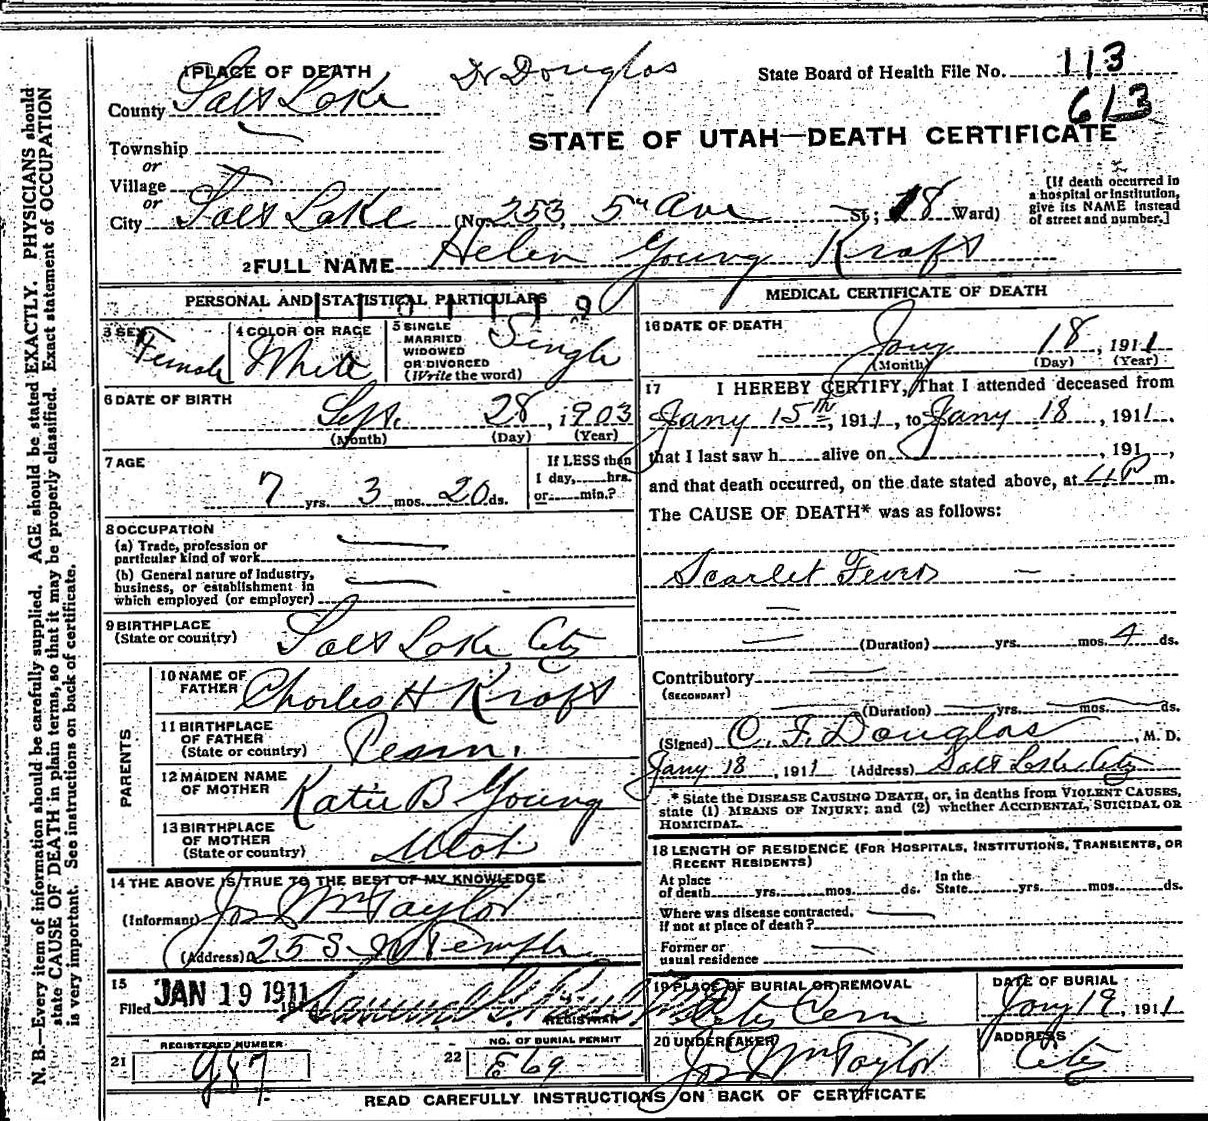 N. B.—Every item of information should be carefully supplied. AGE should be stated EXACTLY. PHYSICIANS should
state CAUSE OF DEATH in plain terms, so that it may be properly classified. Exact statement of OCCUPATION
is very important. See instructions on back of certificate.
1 PLACE OF DEATH Dr Douglas State Board of Health File No. 113
County Salt Lake 613
STATE OF UTAH—DEATH CERTIFICATE
Township
or
Village
or
City Salt Lake (No. 253, 5th Ave St; 18 Ward)
[If death occurred in
a hospital or institution,
give its NAME instead
of street and number.]
2 FULL NAME Helen Young Kraft
PERSONAL AND STATISTICAL PARTICULARS
3 SEX Female
4 COLOR OR RACE White
5 SINGLE
MARRIED
WIDOWED
OR DIVORCED
(Write the word) Single
6 DATE OF BIRTH
Sept. 28, 1903
(Month) (Day) (Year)
7 AGE
7 yrs. 3 mos. 20 ds.
If LESS than
1 day, hrs.
or min.?
8 OCCUPATION
(a) Trade, profession or
particular kind of work
(b) General nature of industry,
business, or establishment in
which employed (or employer)
9 BIRTHPLACE
(State or country) Salt Lake City
PARENTS
10 NAME OF
FATHER Charles H Kraft
11 BIRTHPLACE
OF FATHER
(State or country) Penn.
12 MAIDEN NAME
OF MOTHER Katie B Young
13 BIRTHPLACE
OF MOTHER
(State or country) Utah
14 THE ABOVE IS TRUE TO THE BEST OF MY KNOWLEDGE
(Informant) Jos Wm Taylor
(Address) 25 S W Temple
15
Filed JAN 19 1911
REGISTRAR
REGISTERED NUMBER
21 987
NO. OF BURIAL PERMIT
22 E69
MEDICAL CERTIFICATE OF DEATH
16 DATE OF DEATH
Jany 18, 1911
(Month) (Day) (Year)
17 I HEREBY CERTIFY, That I attended deceased from
Jany 15th, 1911, to Jany 18, 1911,
that I last saw h alive on , 191 ,
and that death occurred, on the date stated above, at 4 P m.
The CAUSE OF DEATH* was as follows:
Scarlet Fever
(Duration) yrs. mos. 4 ds.
Contributory
(SECONDARY)
(Duration) yrs. mos. ds.
(Signed) C. F. Douglas, M. D.
Jany 18, 1911 (Address) Salt Lake City
* State the DISEASE CAUSING DEATH, or, in deaths from VIOLENT CAUSES,
state (1) MEANS OF INJURY; and (2) whether ACCIDENTAL, SUICIDAL OR
HOMICIDAL.
18 LENGTH OF RESIDENCE (FOR HOSPITALS, INSTITUTIONS, TRANSIENTS, OR
RECENT RESIDENTS)
At place
of death yrs. mos. ds. In the
State yrs. mos. ds.
Where was disease contracted,
if not at place of death?
Former or
usual residence
19 PLACE OF BURIAL OR REMOVAL
City Cem
DATE OF BURIAL
Jany 19, 1911
20 UNDERTAKER
Jos Wm Taylor
ADDRESS
City
READ CAREFULLY INSTRUCTIONS ON BACK OF CERTIFICATE